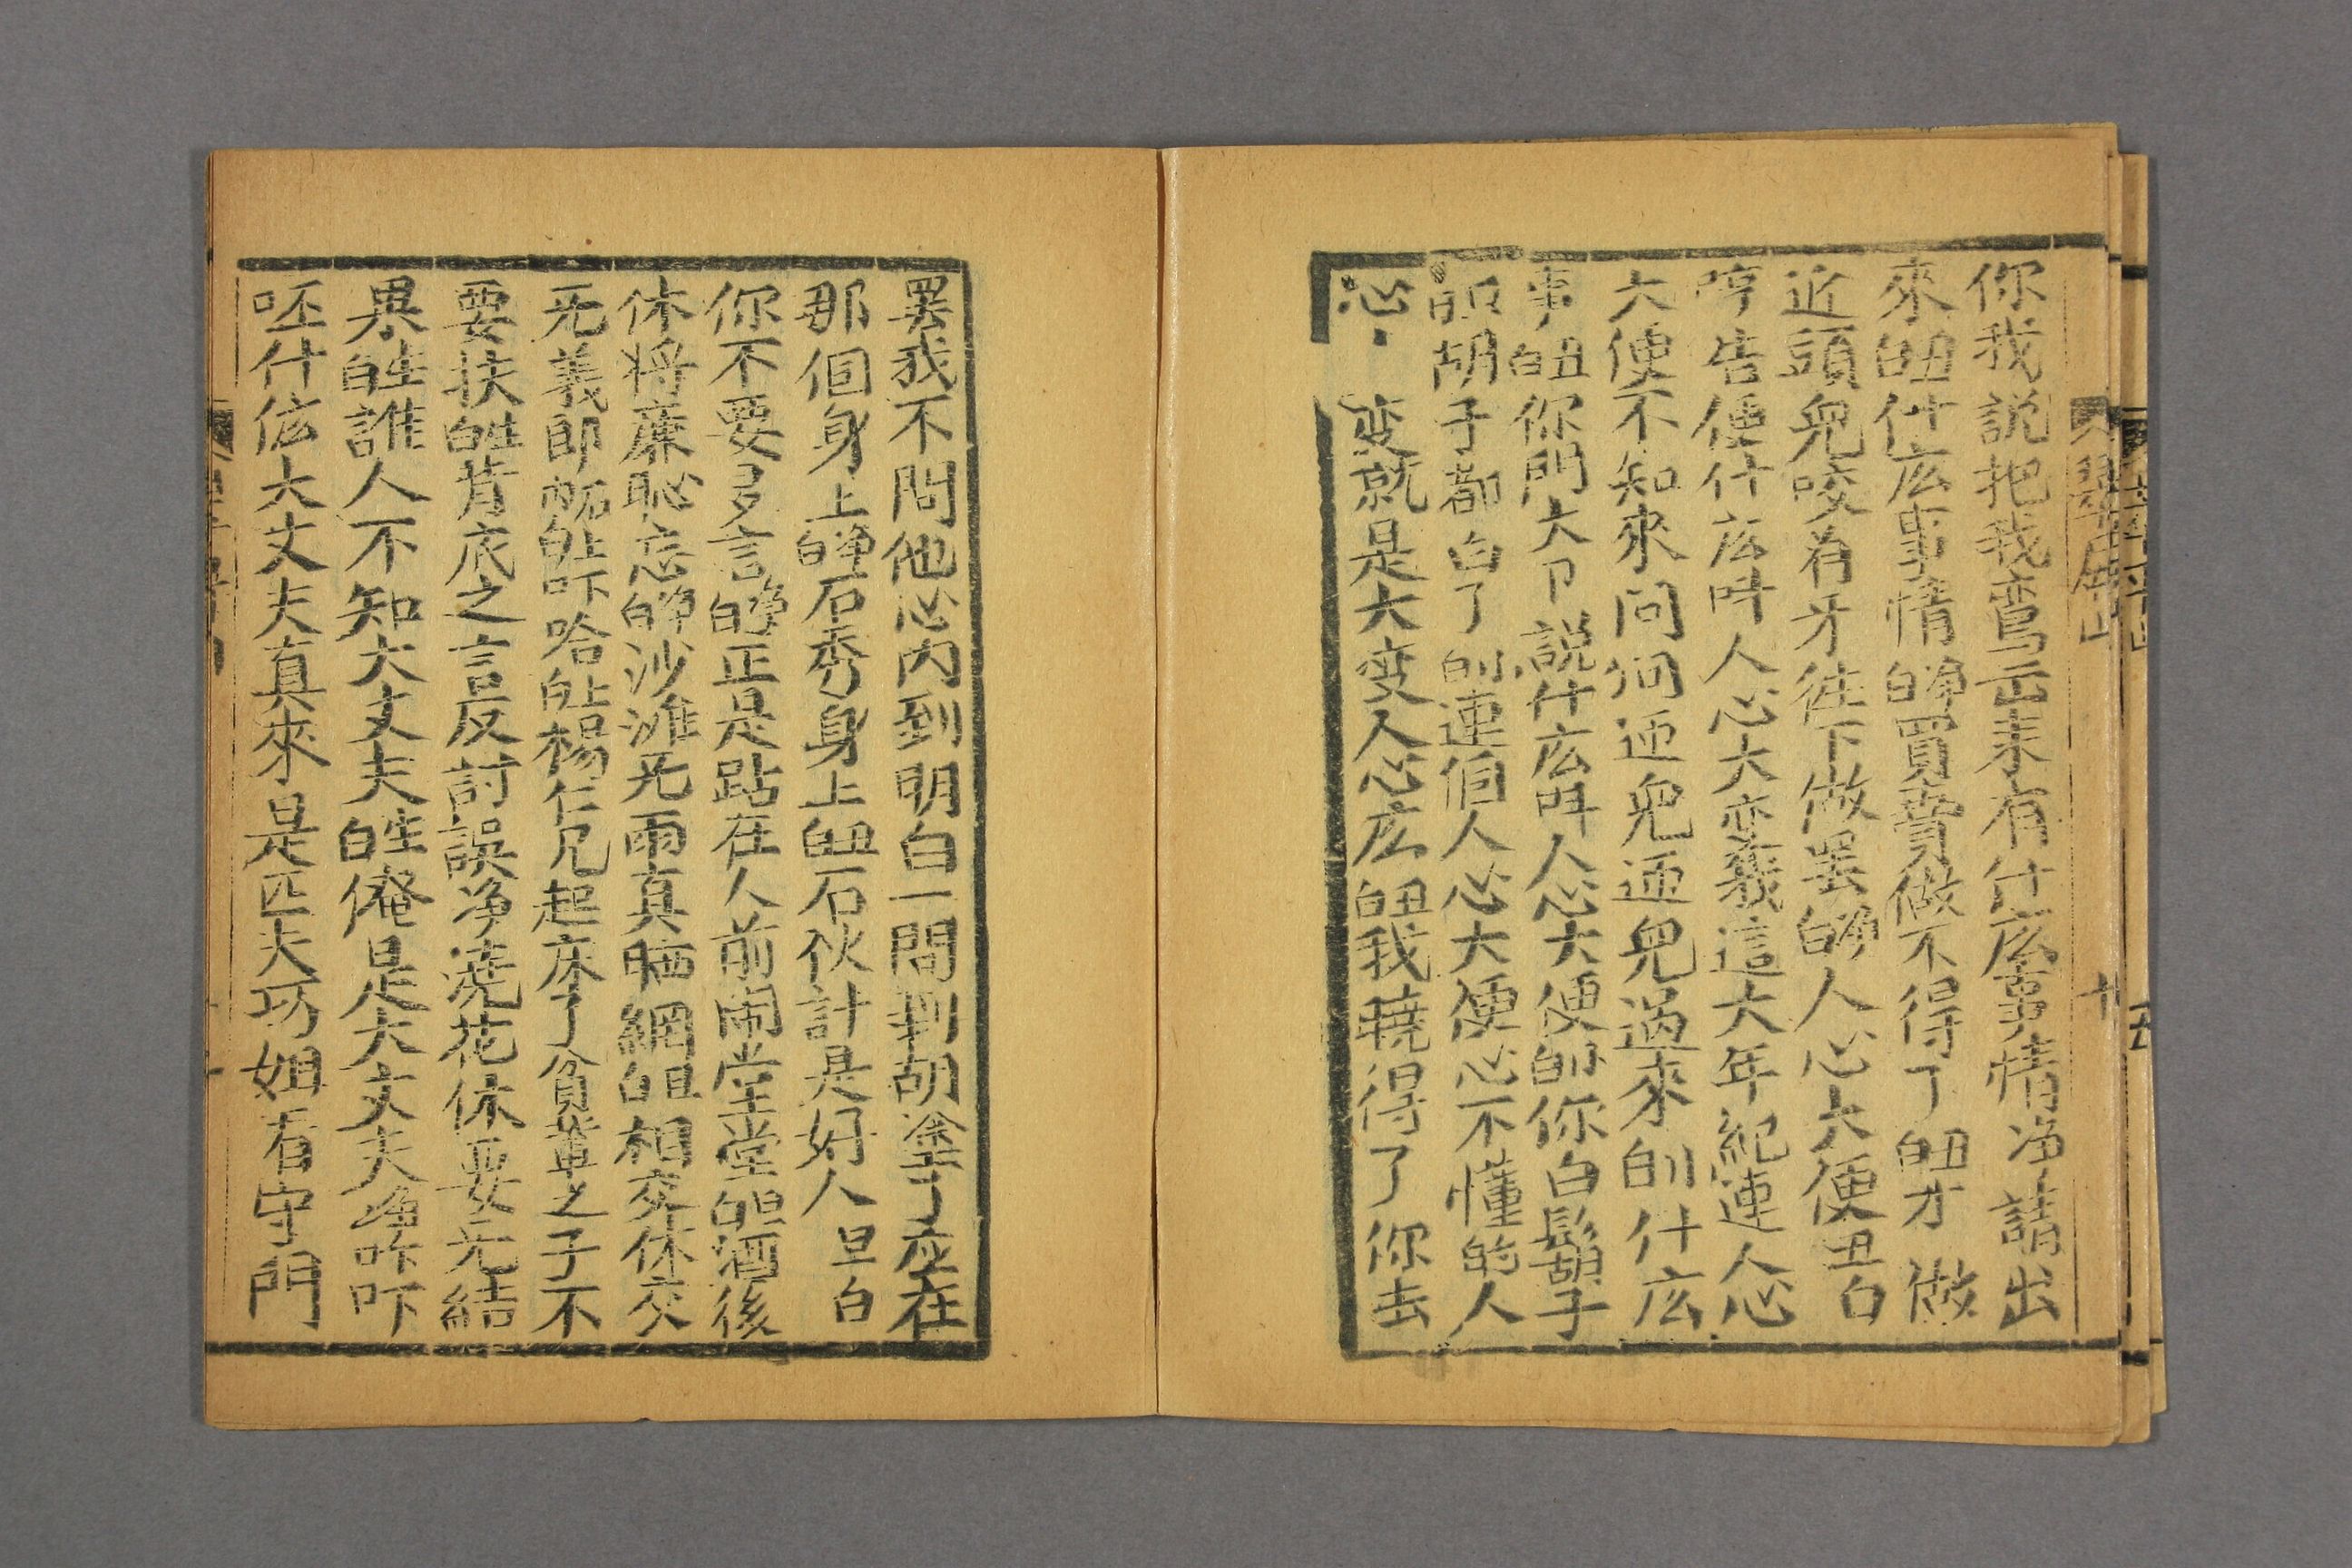 你我説把我鸾云来有什庅事情净請出
來丑白什庅事情净白買賣做不得了丑白才做
近頭兒咬有牙徃下做罢净白人心大便丑白
哼告便什庅呌人心大变這大年紀連人心
大便不知來问问迊兒迊兒過來白什庅
事丑白你門大卩説什庅呌人心大便白你白鬍子
胡子都白了白連個人心大便心不懂的人
心 变就是大变人心庅丑白我曉得了你去
翠屏山
十
罢我不問他心内到明白一問到胡塗了庒在
那個身上净白石秀身上丑白石伙計是好人旦白
你不要多言净白正是跕在人前閙堂堂旦白酒後
休将廉恥忘净白沙滩无雨真晒網旦白相交休交
无義郎白吓哈白楊仁兄起床了貧輩之子不
要扶生白背底之言反討誤净澆花休要先結
果生白誰人不知大丈夫生白俺是大丈夫净咋吓
呸什庅大丈夫真來是匹夫巧姐看守門